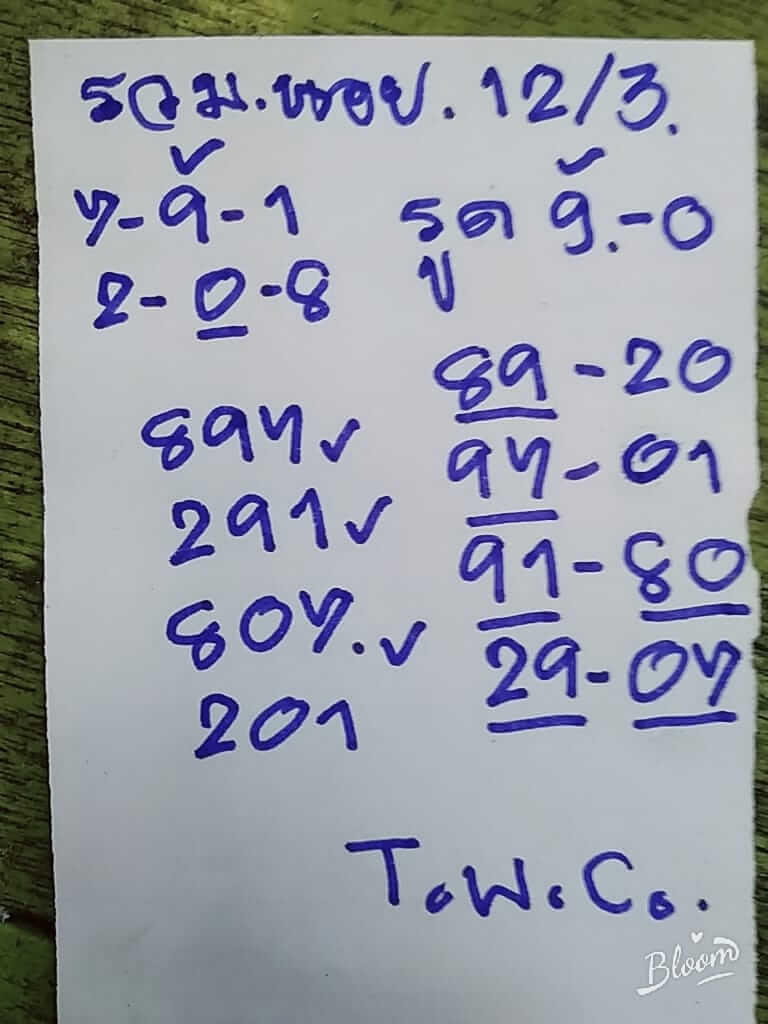 รวม.หอย. 12/3.
7-9-1 รูด 9.-0
2-0-8
89-20
897✓
97-01
291✓
91-80
807.✓
29-07
201
T.W.C..
Bloom